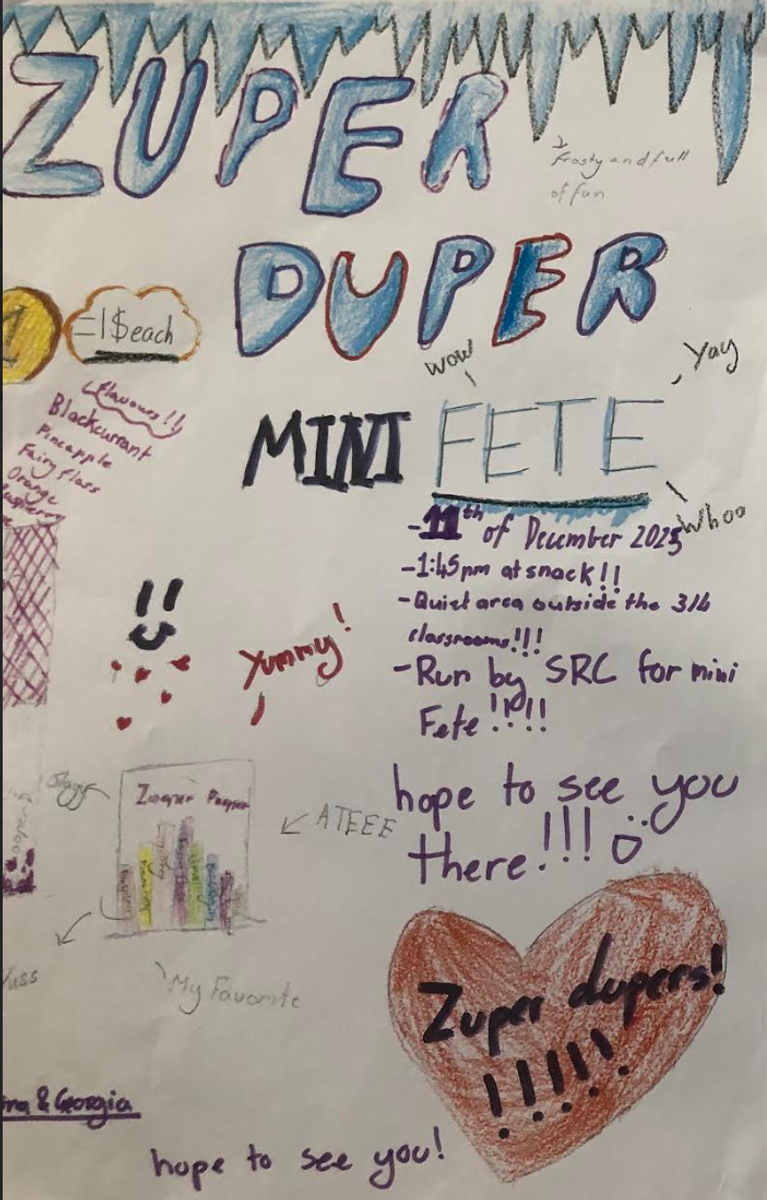 ZUPER
Frosty and full
of fun
DUPER
1
=1$each
wow
Yay
MINI FETE
Whoo
flavours!!
Blackcurrant
Pineapple
Fairy floss
Orange
-11th of December 2025
-1:45pm at snack!!
-Quiet area outside the 3/6
classrooms!!!
-Run by SRC for mini
Fete!!!!!
Yummy!
hope to see you
there!!!
ATEEE
My Favorite
Zuper dupers!
!!!!!
& Georgia
hope to see you!